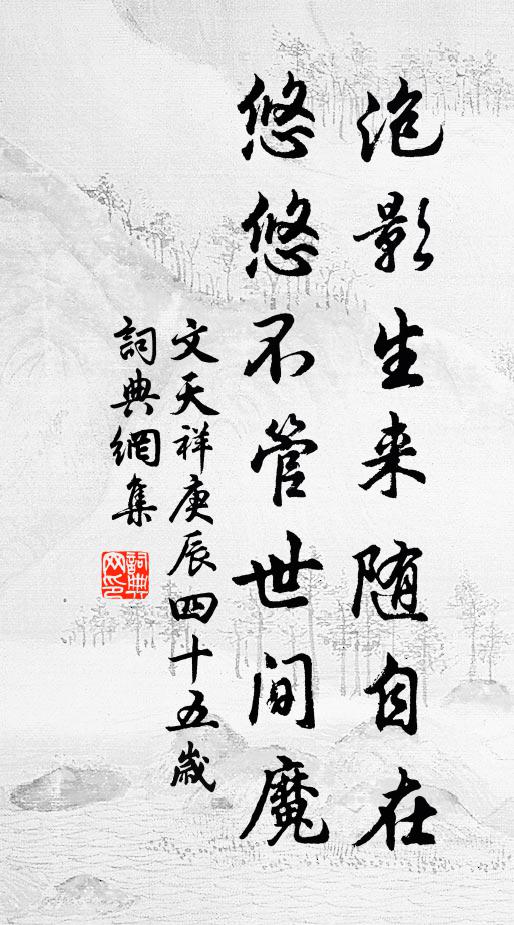 泡影生来随自在
悠悠不管世间魔
文天祥庚辰四十五歳
詞典網集
詞典网印